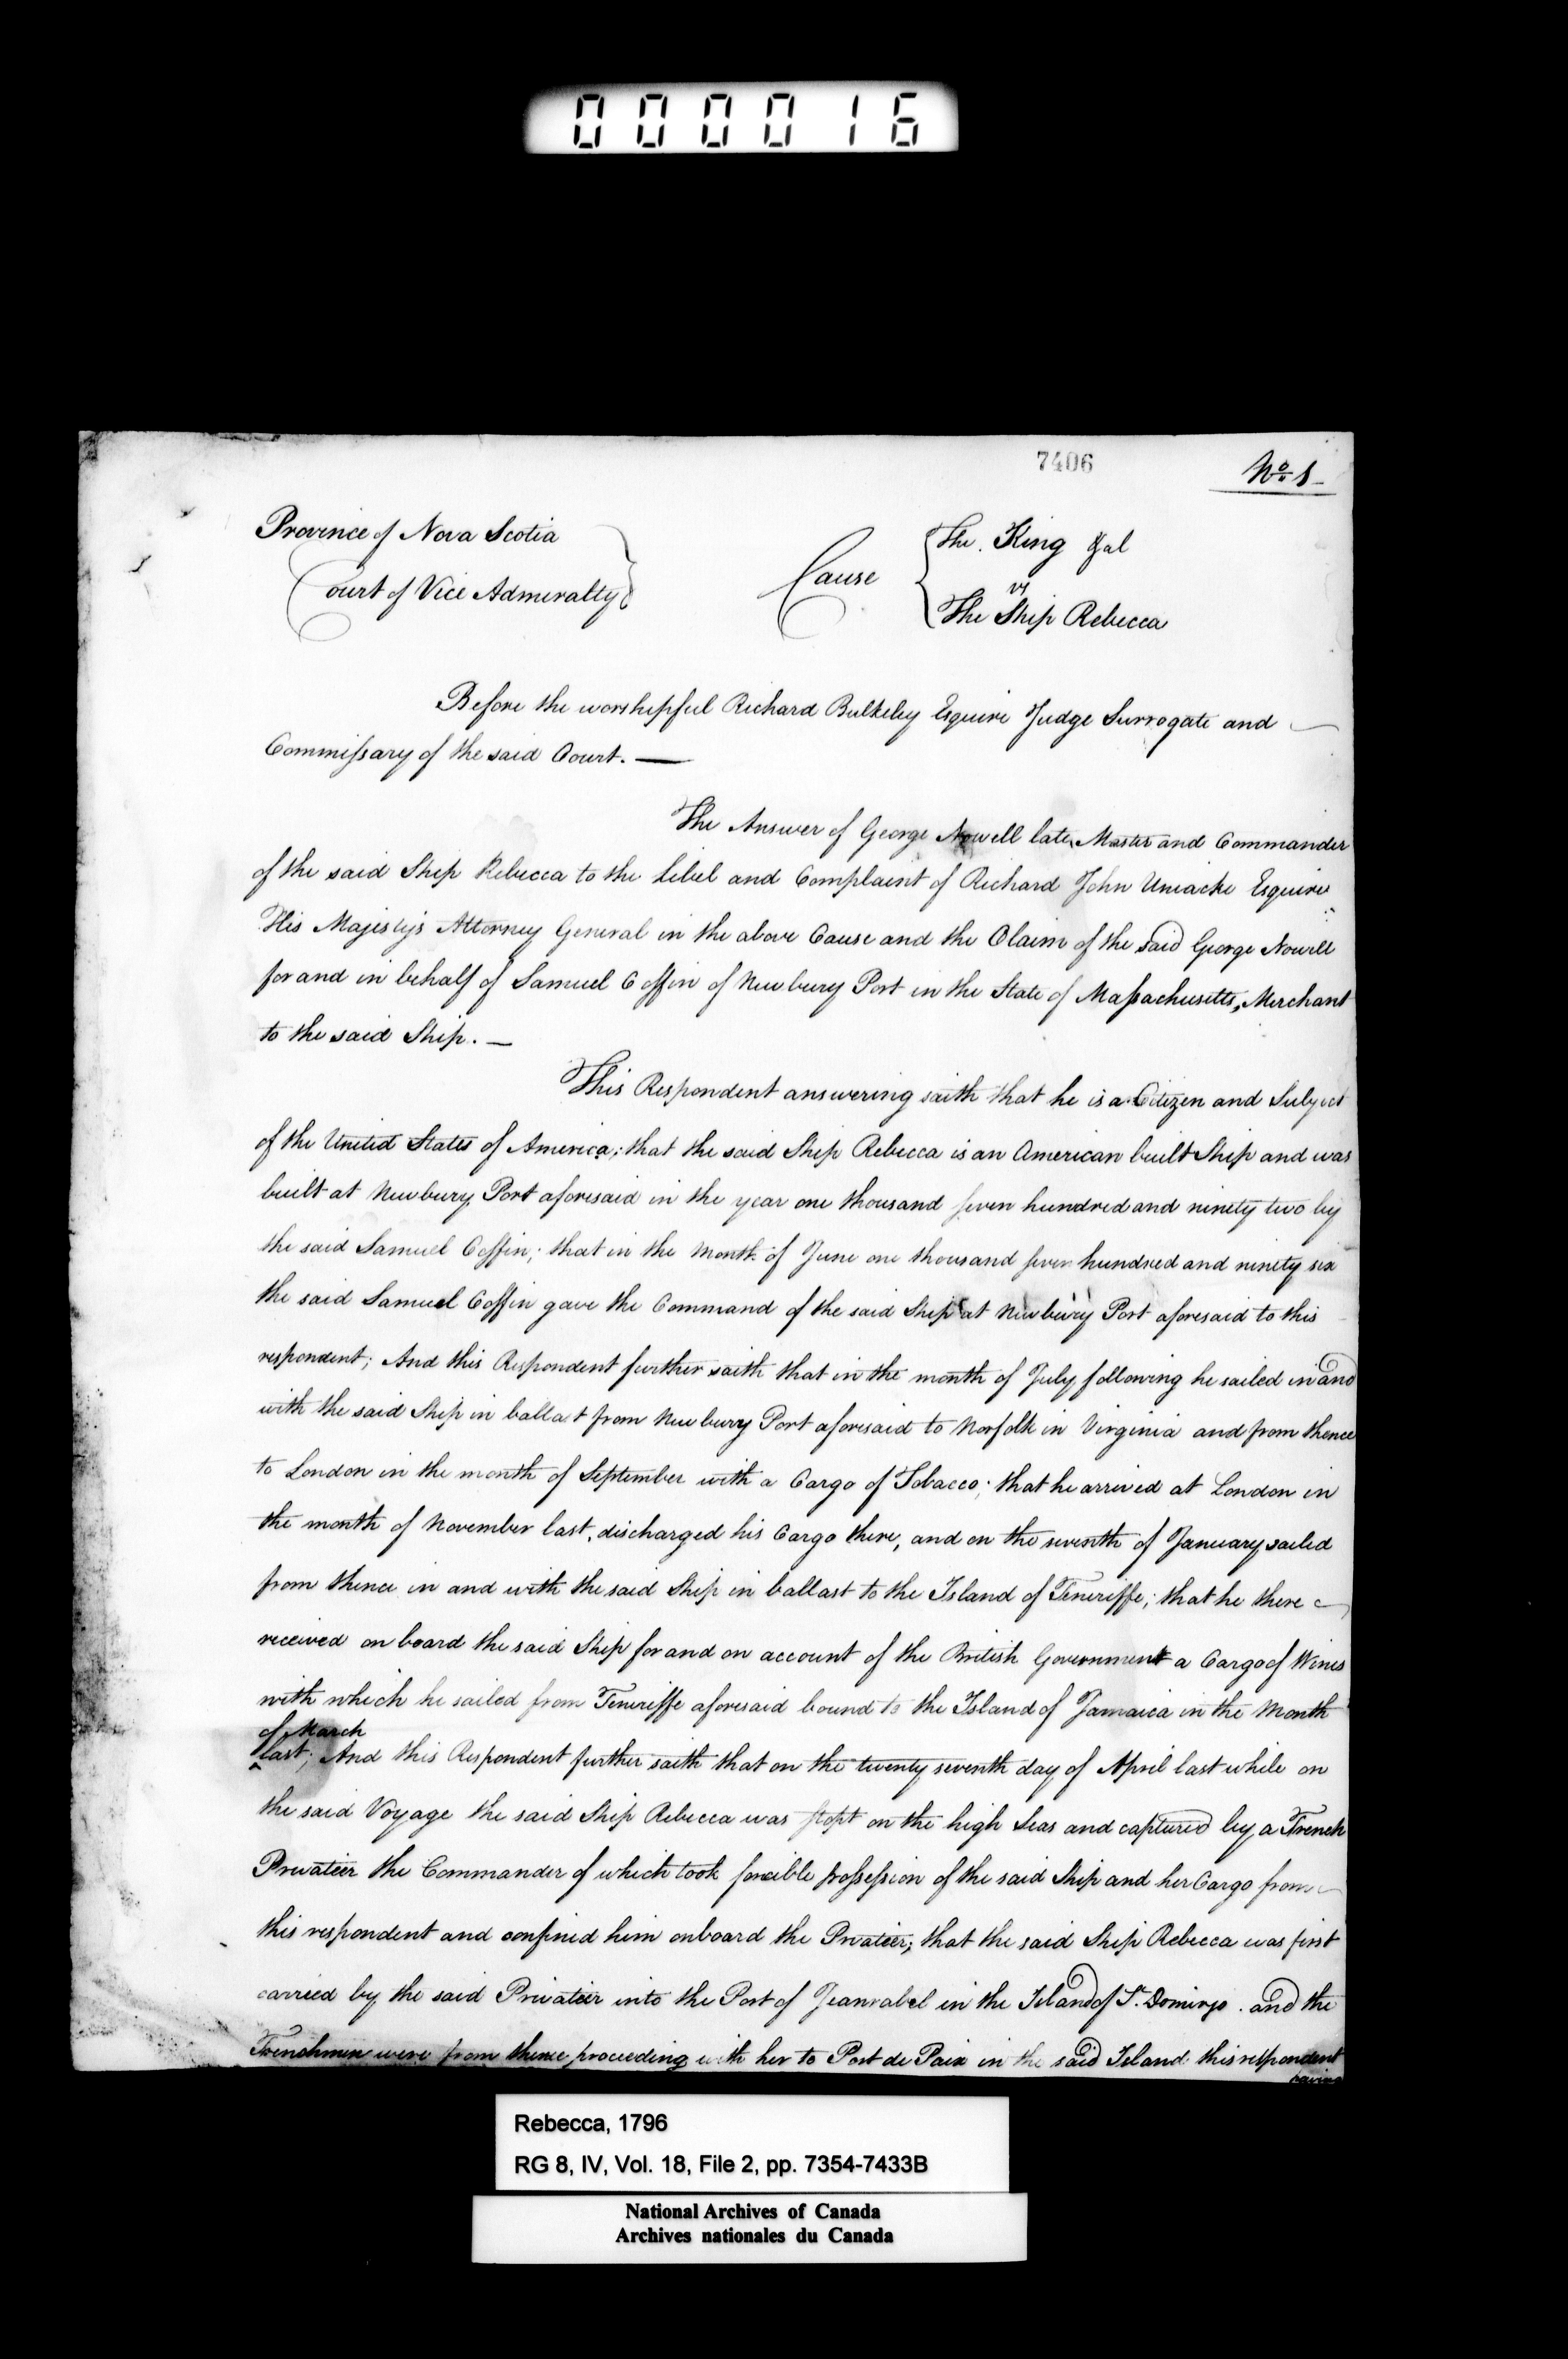 000016
7406
No. 1
Province of Nova Scotia
Court of Vice Admiralty
Cause
The King & al
vs
The Ship Rebecca
Before the worshipful Richard Bulkeley Esquire Judge Surrogate and
Commissary of the said Court. —
The Answer of George Nowell late Master and Commander
of the said Ship Rebecca to the Libel and Complaint of Richard John Uniacke Esquire
His Majesty's Attorney General in the above Cause and the Claim of the said George Nowell
for and in behalf of Samuel Coffin of Newbury Port in the State of Massachusetts, Merchant
to the said Ship. —
This Respondent answering saith that he is a Citizen and Subject
of the United States of America; that the said Ship Rebecca is an American built Ship and was
built at Newbury Port aforesaid in the year one thousand seven hundred and ninety two by
the said Samuel Coffin; that in the Month of June one thousand seven hundred and ninety six
the said Samuel Coffin gave the Command of the said Ship at Newbury Port aforesaid to this
respondent; And this Respondent further saith that in the month of July following he sailed in and
with the said Ship in ballast from Newbury Port aforesaid to Norfolk in Virginia and from thence
to London in the month of September with a Cargo of Tobacco; that he arrived at London in
the month of November last, discharged his Cargo there, and on the seventh of January sailed
from thence in and with the said Ship in ballast to the Island of Teneriffe; that he there
received on board the said Ship for and on account of the British Government a Cargo of Wines
with which he sailed from Teneriffe aforesaid bound to the Island of Jamaica in the Month
of March
last; And this Respondent further saith that on the twenty seventh day of April last while on
the said Voyage the said Ship Rebecca was stopt on the high Seas and captured by a French
Privateer the Commander of which took forcible possession of the said Ship and her Cargo from
this respondent and confined him onboard the Privateer; that the said Ship Rebecca was first
carried by the said Privateer into the Port of Jeanrabel in the Island of St. Domingo. and the
Frenchmen were from thence proceeding with her to Port de Paix in the said Island this respondent
having
Rebecca, 1796
RG 8, IV, Vol. 18, File 2, pp. 7354-7433B
National Archives of Canada
Archives nationales du Canada